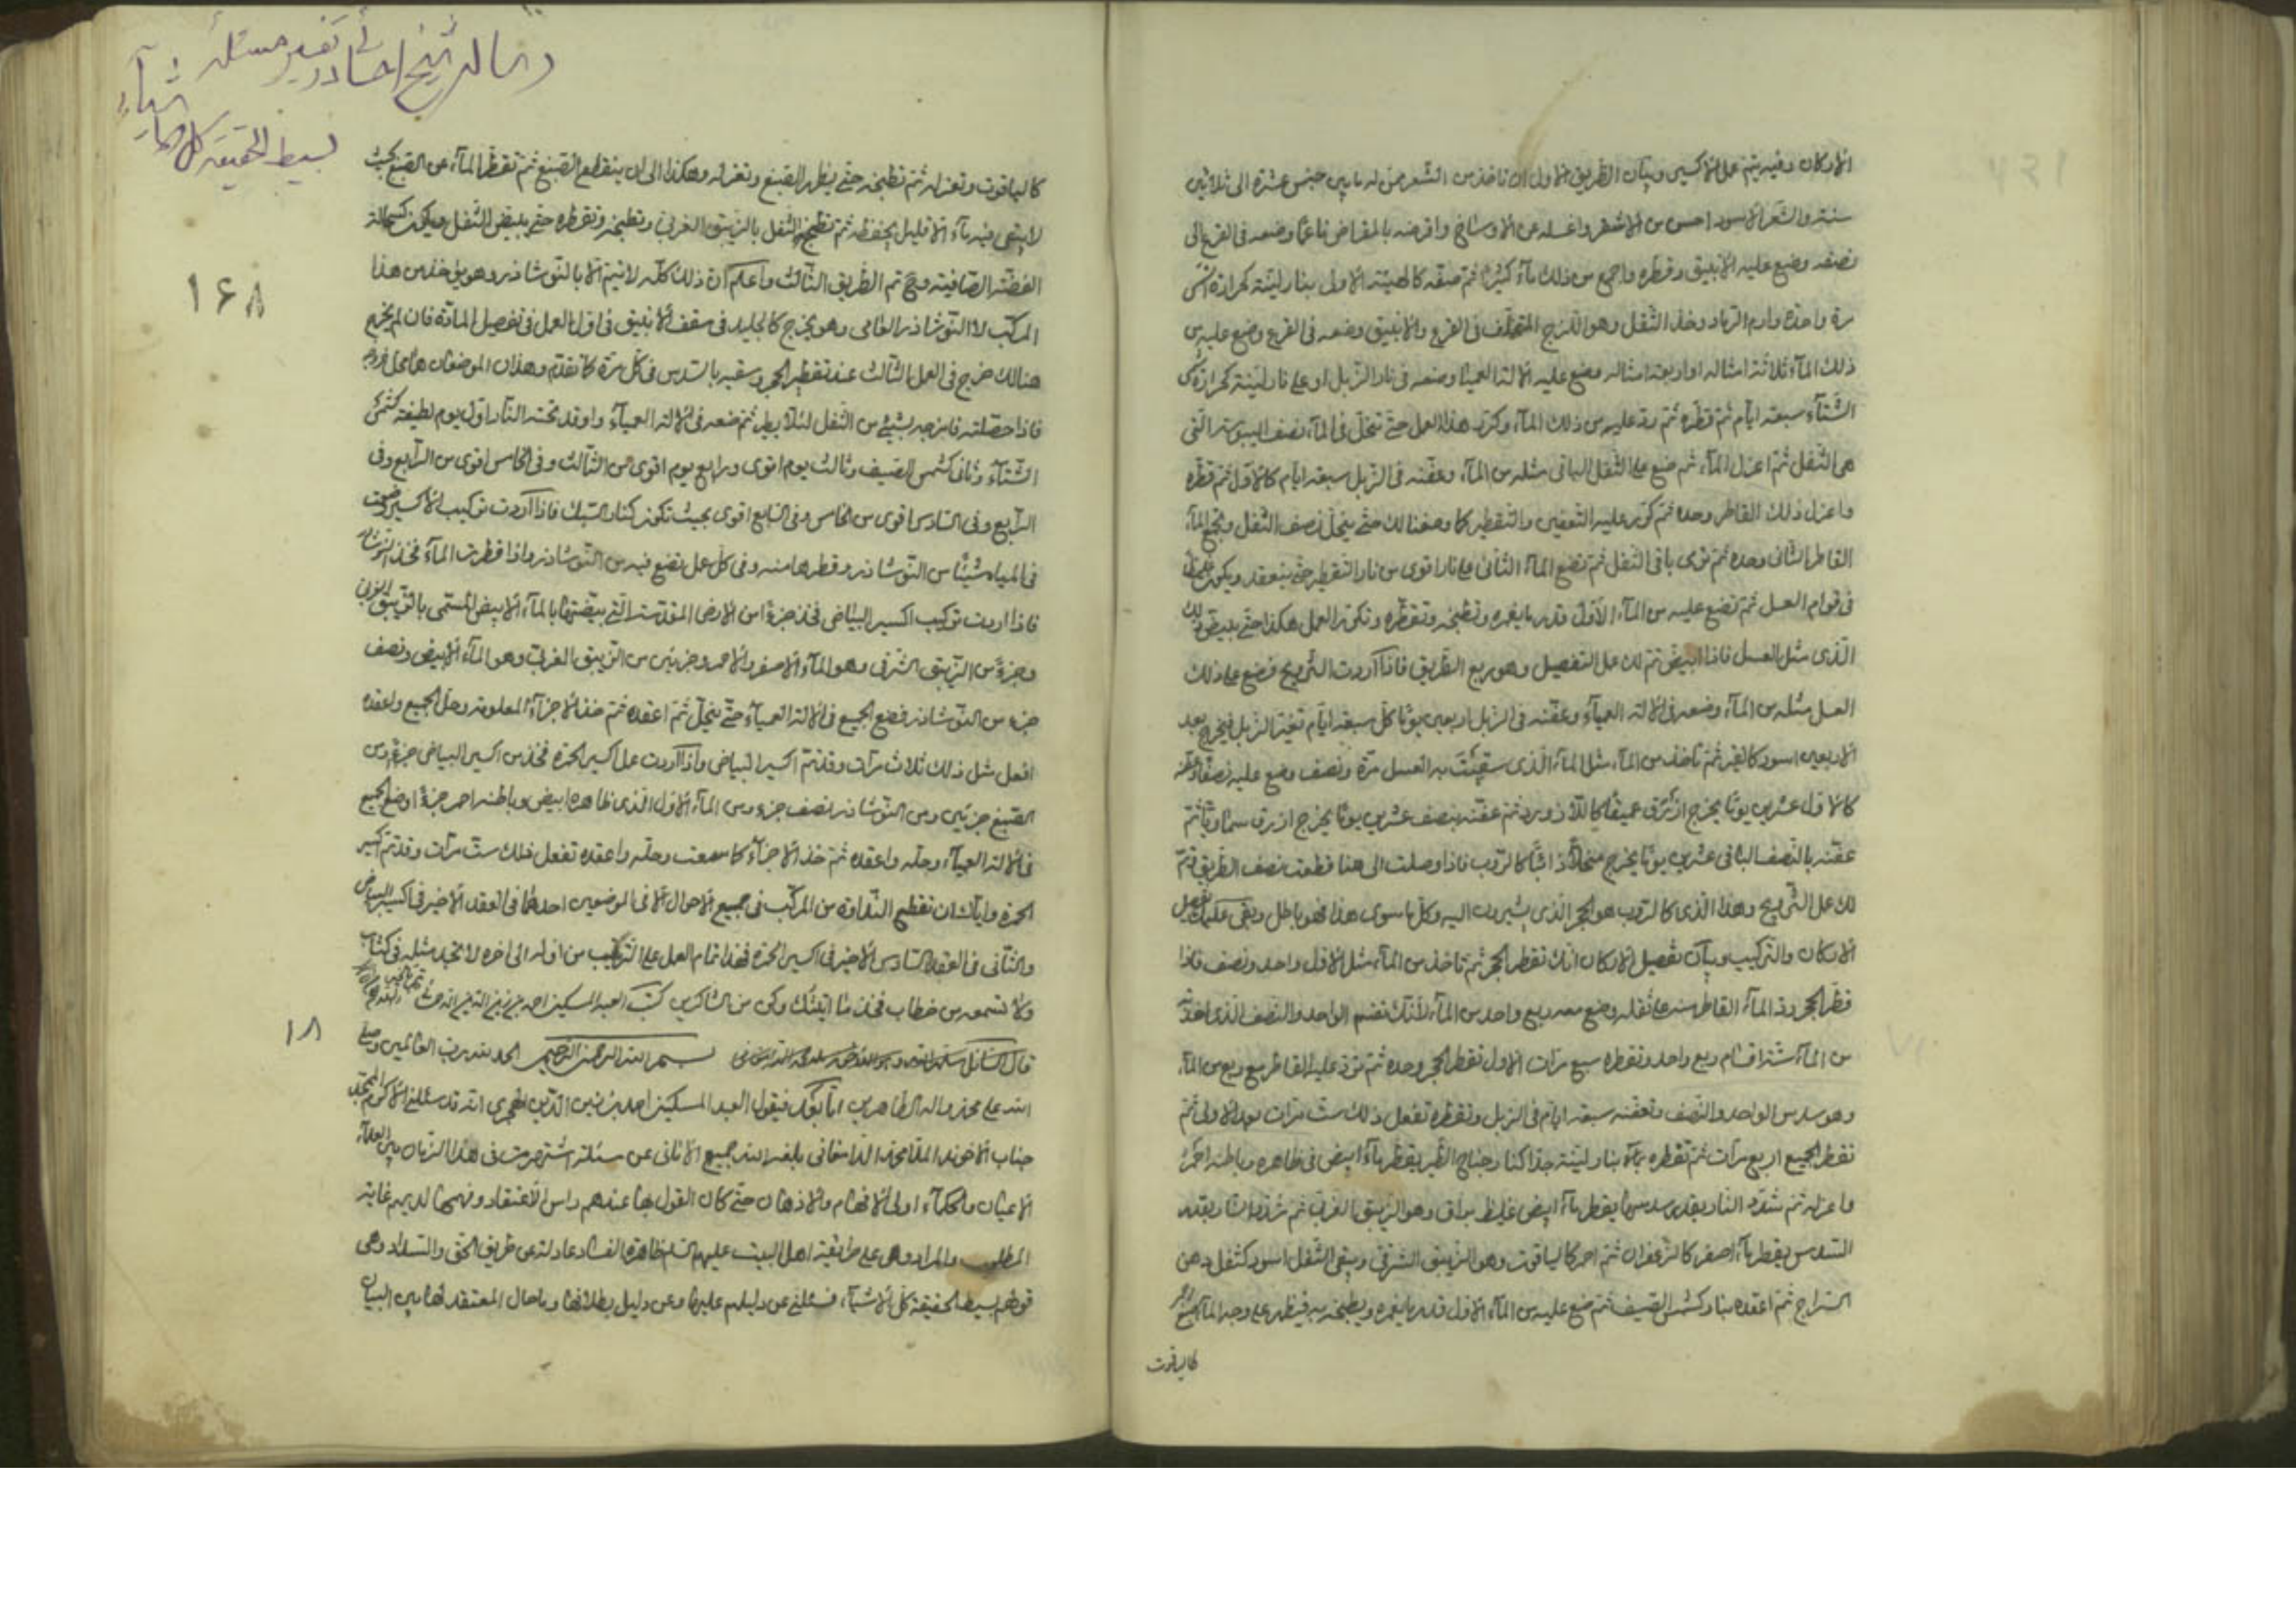 الاركان وفيه يتم عمل الاكسير وبيان الطريق الاول ان تاخذ من الشعر ممن له ما بين خمس عشرة الى ثلاثين
سنة والشعر الاسود احسن من الاشقر واغسله عن الاوساخ واقرضه بالمقراض ناعما وضعه فى القرع الى
نصفه وضع عليه الانبيق وقطره واجمع من ذلك ماء كثيرا ثم صفه كالهيئة الاولى بنار لينة كحرارة الشمس
مرة واحدة وارم الرماد وخذ الثفل وهو اللزج المتخلف فى القرع والانبيق وضعه فى القرع وضع عليه من
ذلك الماء ثلاثة امثاله او اربعة امثاله وضع عليه الالة العمياء وضعه فى نار الزبل او على نار لينة كحرارة
الشتاء سبعة ايام ثم قطره ثم رد عليه من ذلك الماء وكرر هذا العمل حتى تنحل فى الماء نصف اليبوسة التى
هى الثفل ثم اعزل الماء ثم ضع على الثفل الباقى مثله من الماء وعفنه فى الزبل سبعة ايام كالاول ثم قطره
واعزل ذلك القاطر وحده ثم كرر عليه التعفين والتقطير كما وصفنا لك حتى ينحل نصف الثفل ويجمع الماء
القاطر الثانى وحده ثم ترمى باقى الثفل ثم تضع الماء الثانى على نار اقوى من نار التقطير حتى ينعقد ويكون
فى قوام العسل ثم تضع عليه من الماء الاول قدر ما يغمره وتطبخه وتقطره وتكرر العمل هكذا حتى يبيض لك
الذى مثل العسل فاذا ابيض تم لك عمل التفصيل وهو ربع الطريق فاذا اردت التزويج فضع على ذلك
العسل مثله من الماء وضعه فى الالة العمياء وعفنه فى الزبل اربعين يوما كل سبعة ايام تغير الزبل فيخرج بعد
الاربعين اسود كالقير ثم تاخذ من الماء مثل الماء الذى سقيت به العسل مرة ونصف وضع عليه نصفا وعفنه
كالاول عشرين يوما يخرج ازرق عميقا كاللازورد ثم عفنه بنصف عشرين يوما يخرج ازرق سماويا ثم
عفنه بالنصف الباقى عشرين يوما يخرج منحلا ذائبا كالروب فاذا وصلت الى هنا قطعت نصف الطريق وتم
لك عمل التزويج وهذا الذى كالروب هو الحجر الذى يشيرون اليه وكل ما سوى هذا فهو باطل وبقى عليك تفصيل
الاركان والتركيب وبيان تفصيل الاركان انك تقطر الحجر ثم تاخذ من الماء مثل الاول واحد ونصف فاذا
قطر الحجر رد الماء القاطر منه على ثفله وضع معه ربع واحد من الماء لانك تقسم الواحد والنصف الذى اخذته
من الماء ستة اقسام ربع واحد وتقطره سبع مرات الاول تقطر الحجر وحده ثم ترد عليه القاطر مع ربع من الماء
وهو سدس الواحد والنصف وتعفنه سبعة ايام فى الزبل وتقطره تفعل ذلك ست مرات بعد الاولى ثم
تقطر الجميع اربع مرات ثم تقطره بماء بنار لينة جدا كنار جناح الطير يقطر ماء ابيض فى ظاهره وباطنه احمر
واعزله ثم شدد النار بقدر سدسها يقطر ماء ابيض غليظ براق وهو الزيبق الغربى ثم شدد النار بقدر
السدس يقطر ماء اصفر كالزعفران ثم احمر كالياقوت وهو الزيبق الشرقى ويبقى الثفل اسود كثفل دهن
السراج ثم اعقده بنار كشمس الصيف ثم ضع عليه من الماء الاول قدر ما يغمره ويطبخه به فيظهر على وجه الماء الصبغ احمر
كالياقوت
رسالة شيخ احسائى در تفسير مسئلة
بسيط الحقيقة كل الاشياء
١۶٨
كالياقوت وتعزله ثم تطبخه حتى يظهر الصبغ وتعزله وهكذا الى ان ينقطع الصبغ ثم تقطر الماء عن الصبغ بحيث
لا يبقى فيه ماء الا قليل يحفظه ثم تطبخ الثفل بالزيبق الغربى وتطبخه وتقطره حتى يبيض الثفل ويكون كسحالة
الفضة الصافية وح تم الطريق الثالث واعلم ان ذلك كله لا يتم الا بالنوشاذر وهو يؤخذ من هذا
المركب لا النوشاذر العامى وهو يخرج كالجليد فى سقف الانبيق فى اول العمل فى تفصيل المادة فان لم يخرج
هنالك خرج فى العمل الثالث عند تقطير الحجر وسقيه بالسدس فى كل مرة كما تقدم وهذان الموضعان هما محل خروجه
فاذا حصلته فامزجه بشيئ من الثفل لئلا يطير ثم ضعه فى الالة العمياء واوقد تحته النار اول يوم لطيفة كشمس
الشتاء وثانى كشمس الصيف وثالث يوم اقوى ورابع يوم اقوى من الثالث وفى الخامس اقوى من الرابع وفى
الرابع وفى السادس اقوى من الخامس وفى السابع اقوى بحيث تكون كنار السبك فاذا اردت تركيب الاكسير وضعت
فى المياه شيئا من النوشاذر وقطرها منه وفى كل عمل تضع فيه من النوشاذر واذا قطرت الماء فخذ النوشاذر
فاذا اردت تركيب اكسير البياض فخذ جزءا من الارض المقدسة التى بيضتها بالماء الابيض المسمى بالزيبق الغربى
وجزء من الزيبق الشرقى وهو الماء الاصفر والاحمر وجزئين من الزيبق الغربى وهو الماء الابيض ونصف
جزء من النوشاذر فضع الجميع فى الالة العمياء حتى ينحل ثم اعقده ثم خذ الاجزاء المعلومة وحل الجميع واعقده
افعل مثل ذلك ثلاث مرات وقد تم اكسير البياض واذا اردت عمل اكسير الحمرة فخذ من اكسير البياض جزء ومن
الصبغ جزئين ومن النوشاذر نصف جزء ومن الماء الاول الذى ظاهره ابيض وباطنه احمر جزءا وضع الجميع
فى الالة العمياء وحله واعقده ثم خذ الاجزاء كما سمعت وحله واعقده تفعل ذلك ست مرات وقد تم اكسير
الحمرة واياك ان تقطع النداوة من المركب فى جميع الاحوال الا فى الموضعين احدهما فى العقد الاخير فى اكسير البياض
والثانى فى العقد السادس الاخير فى اكسير الحمرة فهذا تمام العمل على التركيب من اوله الى اخره لا تجد مثله فى كتاب
ولا تسمعه من خطاب فخذ ما اتيتك وكن من الشاكرين كتب العبد المسكين احمد بن زين الدين
١٨
بسم الله الرحمن الرحيم الحمد لله رب العالمين وصلى
الله على محمد واله الطاهرين اما بعد فيقول العبد المسكين احمد بن زين الدين الهجرى انه قد سئلنى الاكرم الممجد
جناب الاخوند الملا محمد الدامغانى بلغه الله جميع الامانى عن مسئلة اشتهرت فى هذا الزمان بين العلماء
الاعيان والحكماء اولى الافهام والاذهان حتى كان القول بها عندهم راس الاعتقاد وفهمها لديهم غاية
المطلوب والمراد وهى على طريقة اهل البيت عليهم السلم ظاهرة الفساد عادلة عن طريق الحق والسداد وهى
قولهم بسيط الحقيقة كل الاشياء فسئلنى عن دليلهم عليها وعن دليل بطلانها وما حال المعتقد لها بين البيان